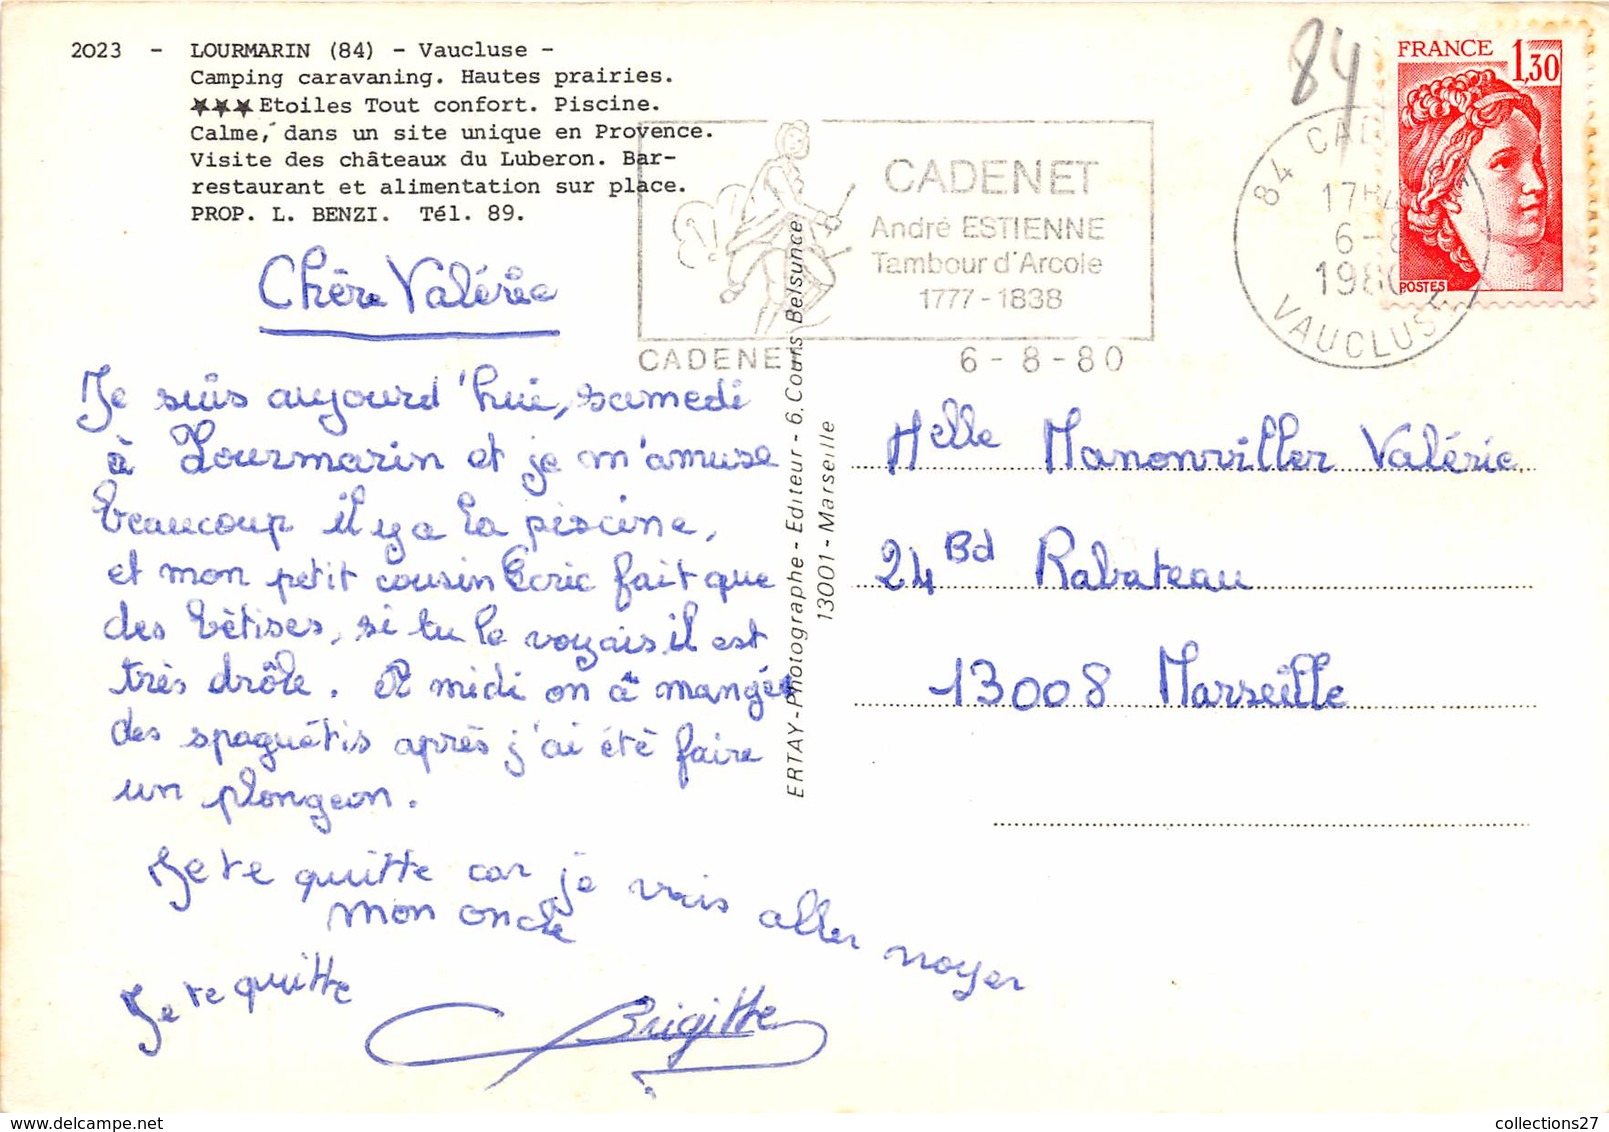 2023 - LOURMARIN (84) - Vaucluse -
Camping caravaning. Hautes prairies.
★★★ Etoiles Tout confort. Piscine.
Calme, dans un site unique en Provence.
Visite des châteaux du Luberon. Bar-
restaurant et alimentation sur place.
PROP. L. BENZI. Tél. 89.
84
FRANCE
1,30
POSTES
CADENET
André ESTIENNE
Tambour d'Arcole
1777-1838
CADENET
6-8-80
84 CAD
17H
6-8
1980
VAUCLUSE
ERTAY-Photographe-Editeur-6, Cours Belsunce
13001-Marseille
Chère Valérie
Je suis aujourd'hui, samedi
à Lourmarin et je m'amuse
beaucoup il y a la piscine,
et mon petit cousin Ecric fait que
des bêtises, si tu le voyais il est
très drôle. A midi on a mangés
des spaguétis après j'ai été faire
un plongeon.
Je te quitte car je vais aller noyer
mon oncle
Je te quitte
Brigitte
Melle Manonviller Valérie
24 Bd Rabateau
13008 Marseille
collections27